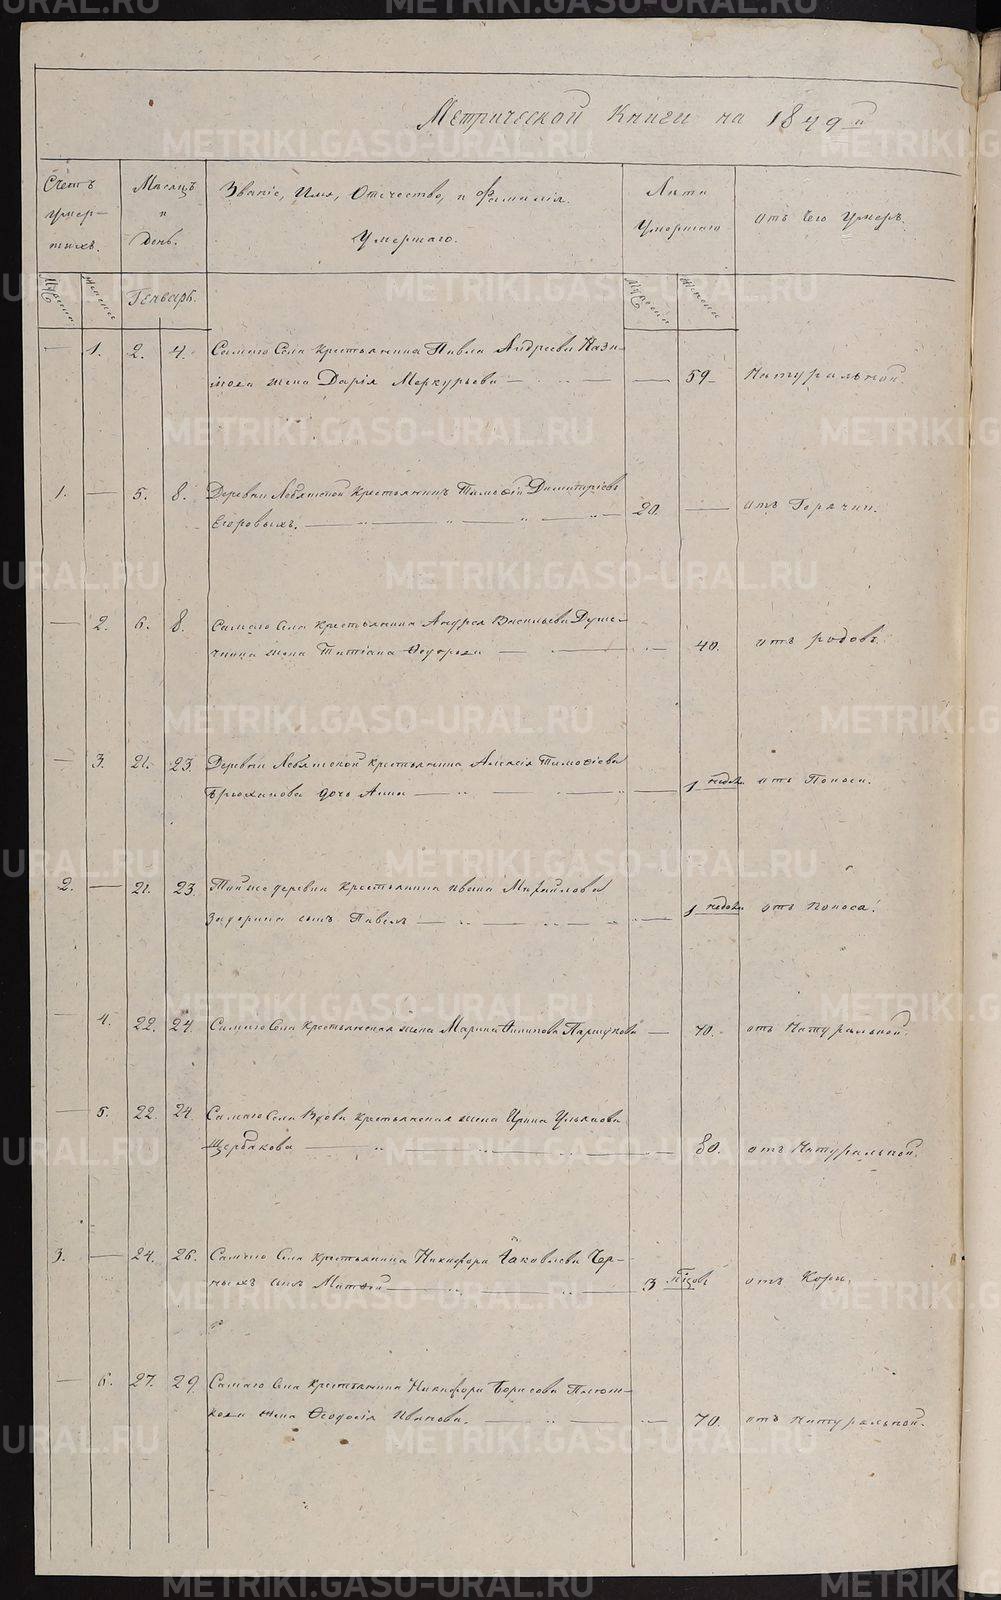 Метрической Книги на 1849й
Счетъ умер-шихъ.
Мѣсяцъ и день.
Званіе, Имя, Отечество, и Фамилія Умершаго.
Лѣта Умершаго
отъ Чего Умеръ.
Мужеска
Женска
Генварь.
Мужеска
Женска
— 1. 2. 4. Самаго Села крестьянина Павла Андреева
жена Дарія Меркурьева — 59 Натуральной.
1. — 5. 8. Деревни крестьянинъ Тимоѳій Димитріевъ
Егоровыхъ. 20. — отъ Горячки.
— 2. 6. 8. Самаго Села крестьянина Андрея Васильева
жена Татіана Ѳедорова — 40. отъ родовъ.
— 3. 21. 23. Деревни крестьянина Алексія Тимоѳіева
Брюханова дочь Анна — 1 недел отъ Поноса.
2. — 21. 23. Той же деревни крестьянина Ивана Михайлова
Задорина сынъ Павелъ — 1 недел отъ Поноса.
4. 22. 24. Самаго Села крестьянская жена Марина Паршукова — 70. отъ Натуральной.
— 5. 22. 24. Самаго Села Вдова крестьянская жена Ирина Ульянова
Щербакова — 80. отъ Натуральной.
3. — 24. 26. Самаго Села крестьянина Никифора Яковлева Чер-
ныхъ сынъ Матѳей — 3 годовъ отъ Кори.
— 6. 27. 29. Самаго Села крестьянина Никифора Борисова
жена Ѳеодосія Иванова. — 70. отъ Натуральной.
METRIKI.GASO-URAL.RU